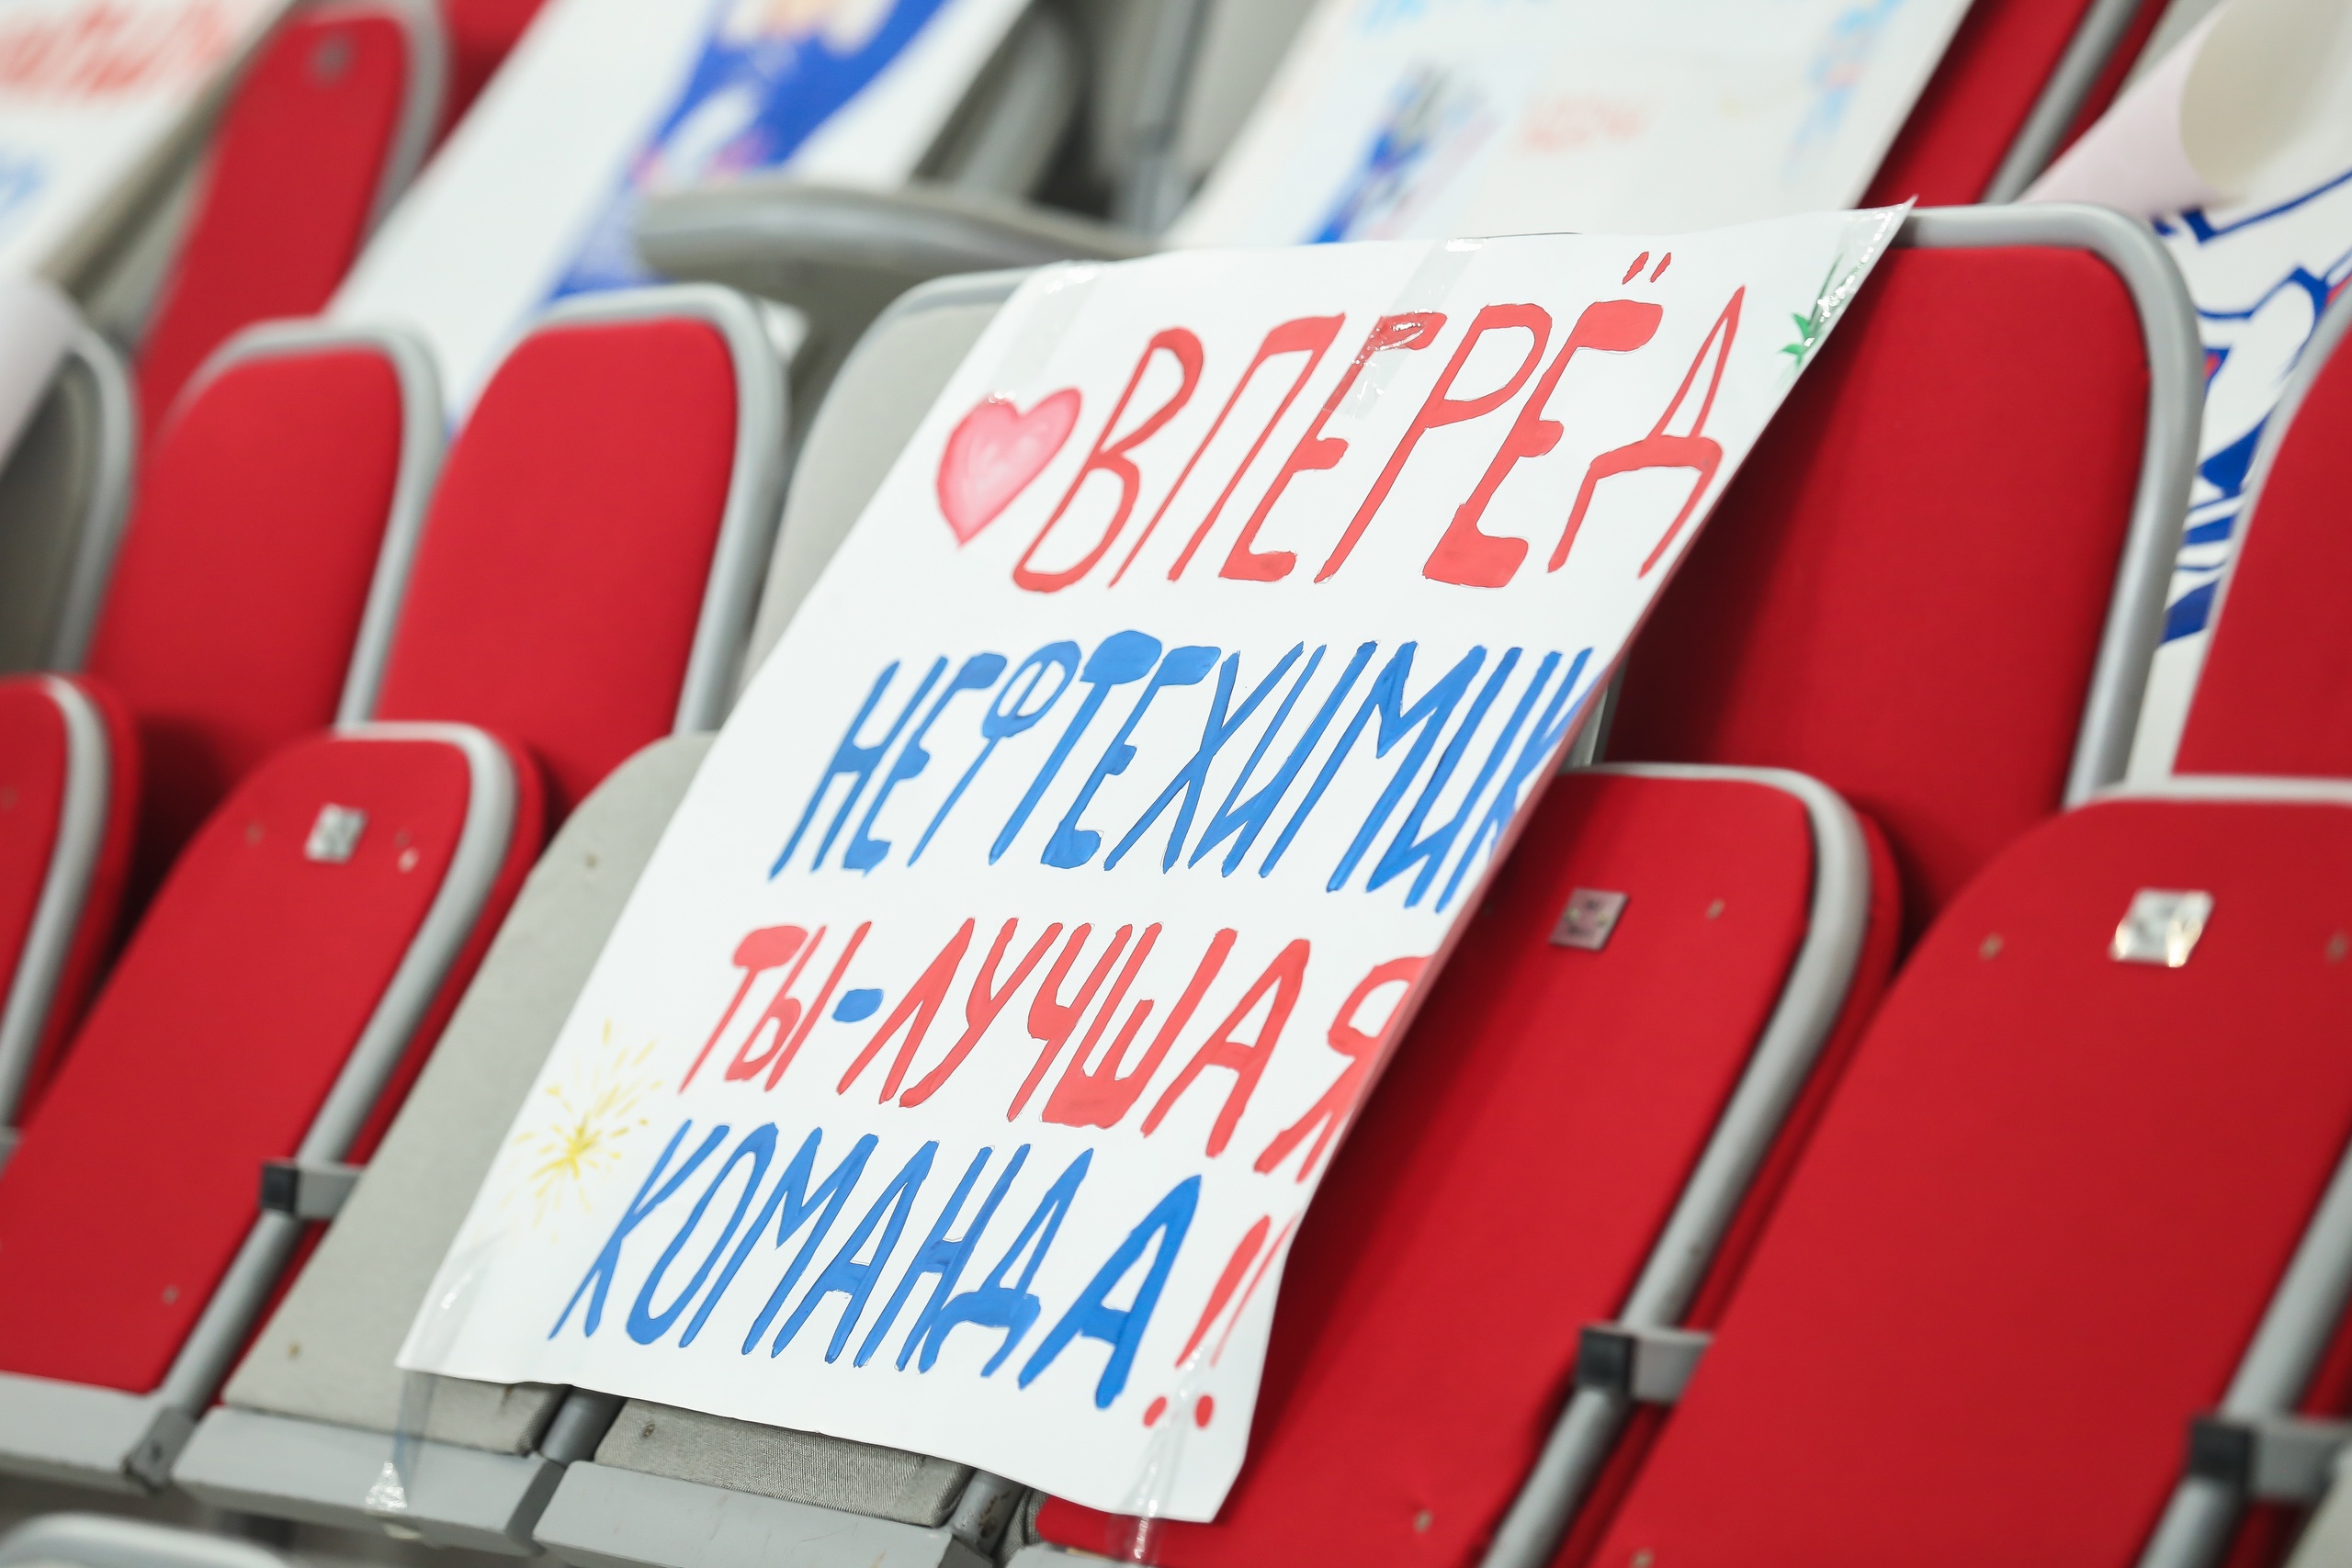 ВПЕРЁД
НЕФТЕХИМИК
ТЫ-ЛУЧШАЯ
КОМАНДА!!